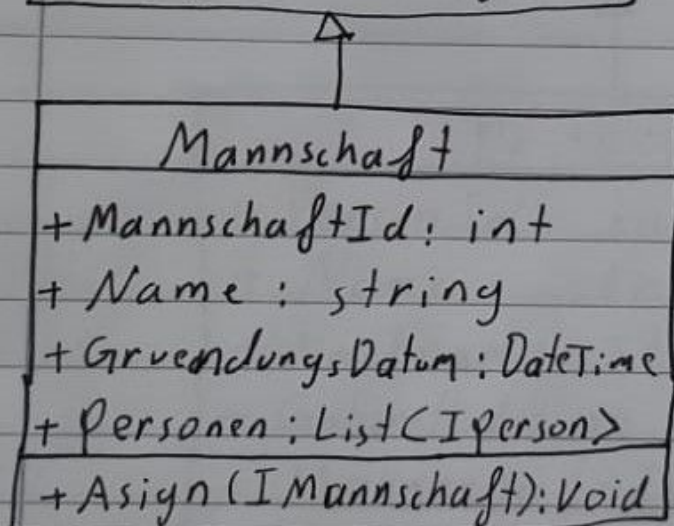 Mannschaft
+ MannschaftId: int
+ Name : string
+ GruendungsDatum : DateTime
+ Personen : List<IPerson>
+ Asign (IMannschaft): Void